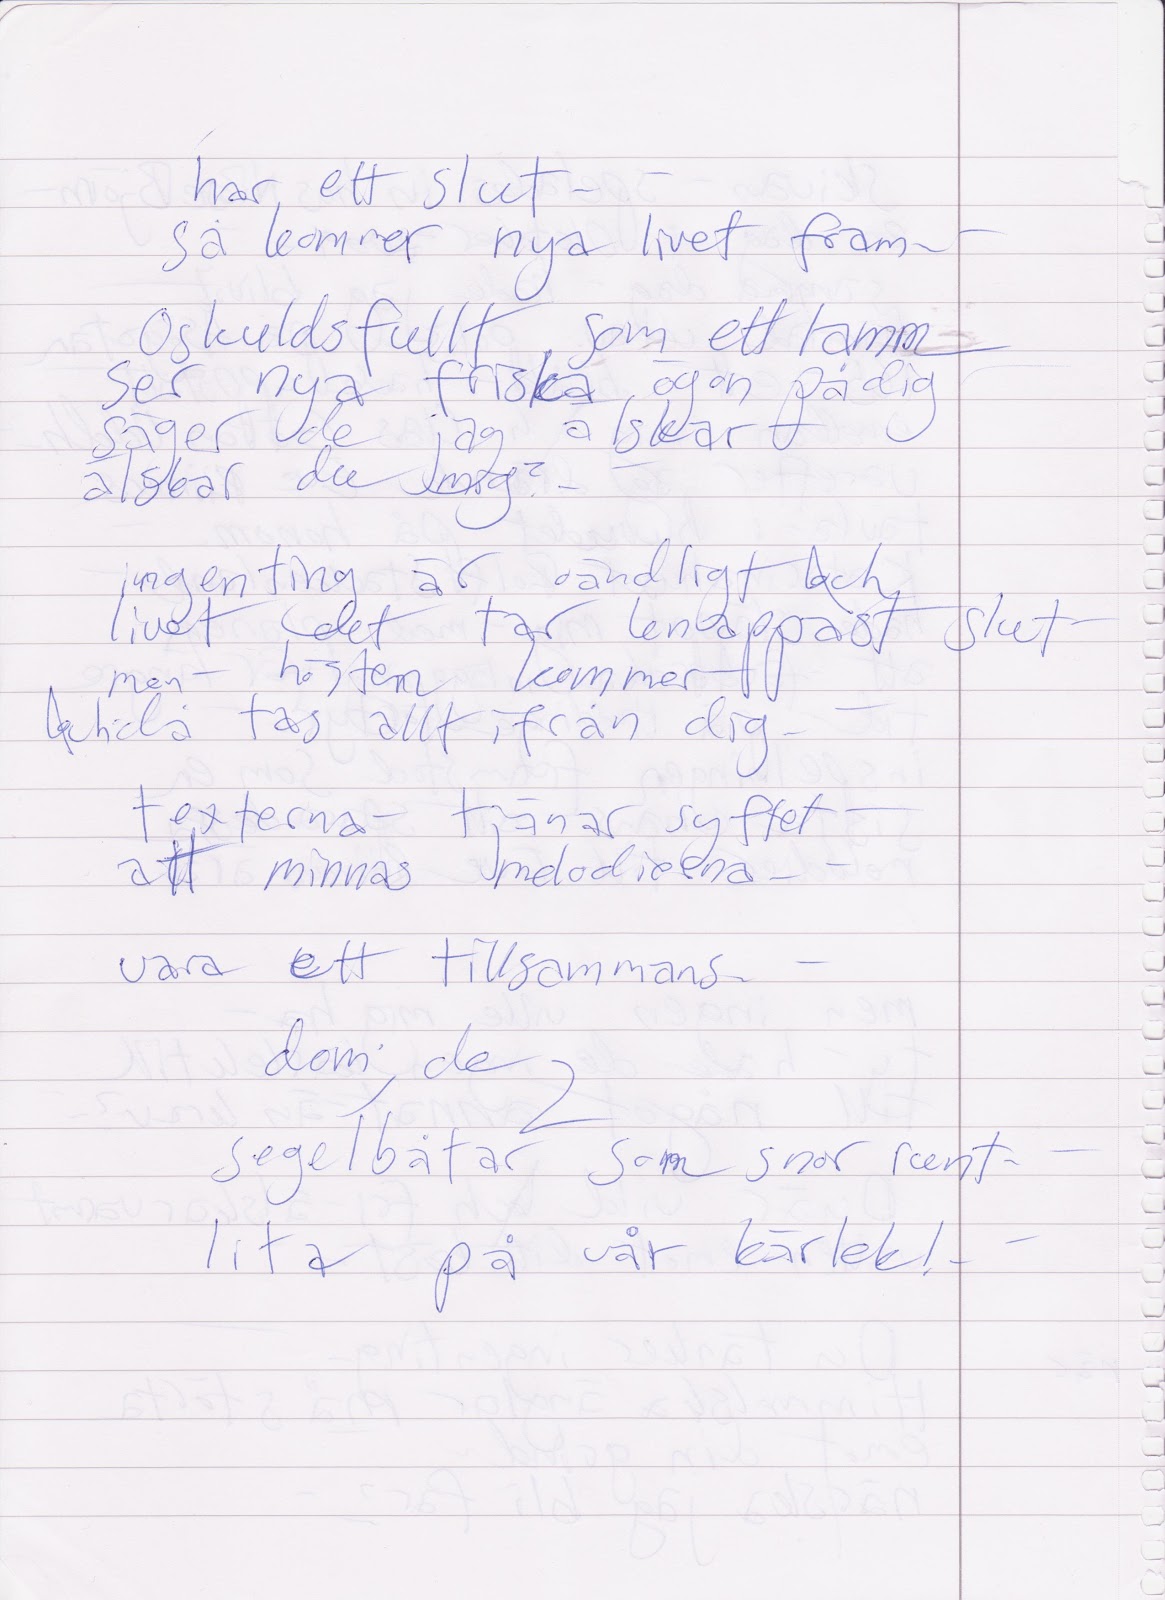 har ett slut -
så kommer nya livet fram - -
Oskuldsfullt som ett lamm -
ser nya friska ögon på dig
säger de jag älskar
älskar du mig? -
ingenting är oändligt och
livet det tar knappast slut -
men - hösten kommer
och då tas allt ifrån dig - -
texterna - tjänar syftet -
att minnas melodierna - -
vara ett tillsammans - -
dom, de 2
segelbåtar som snor runt - -
lita på vår kärlek! - -